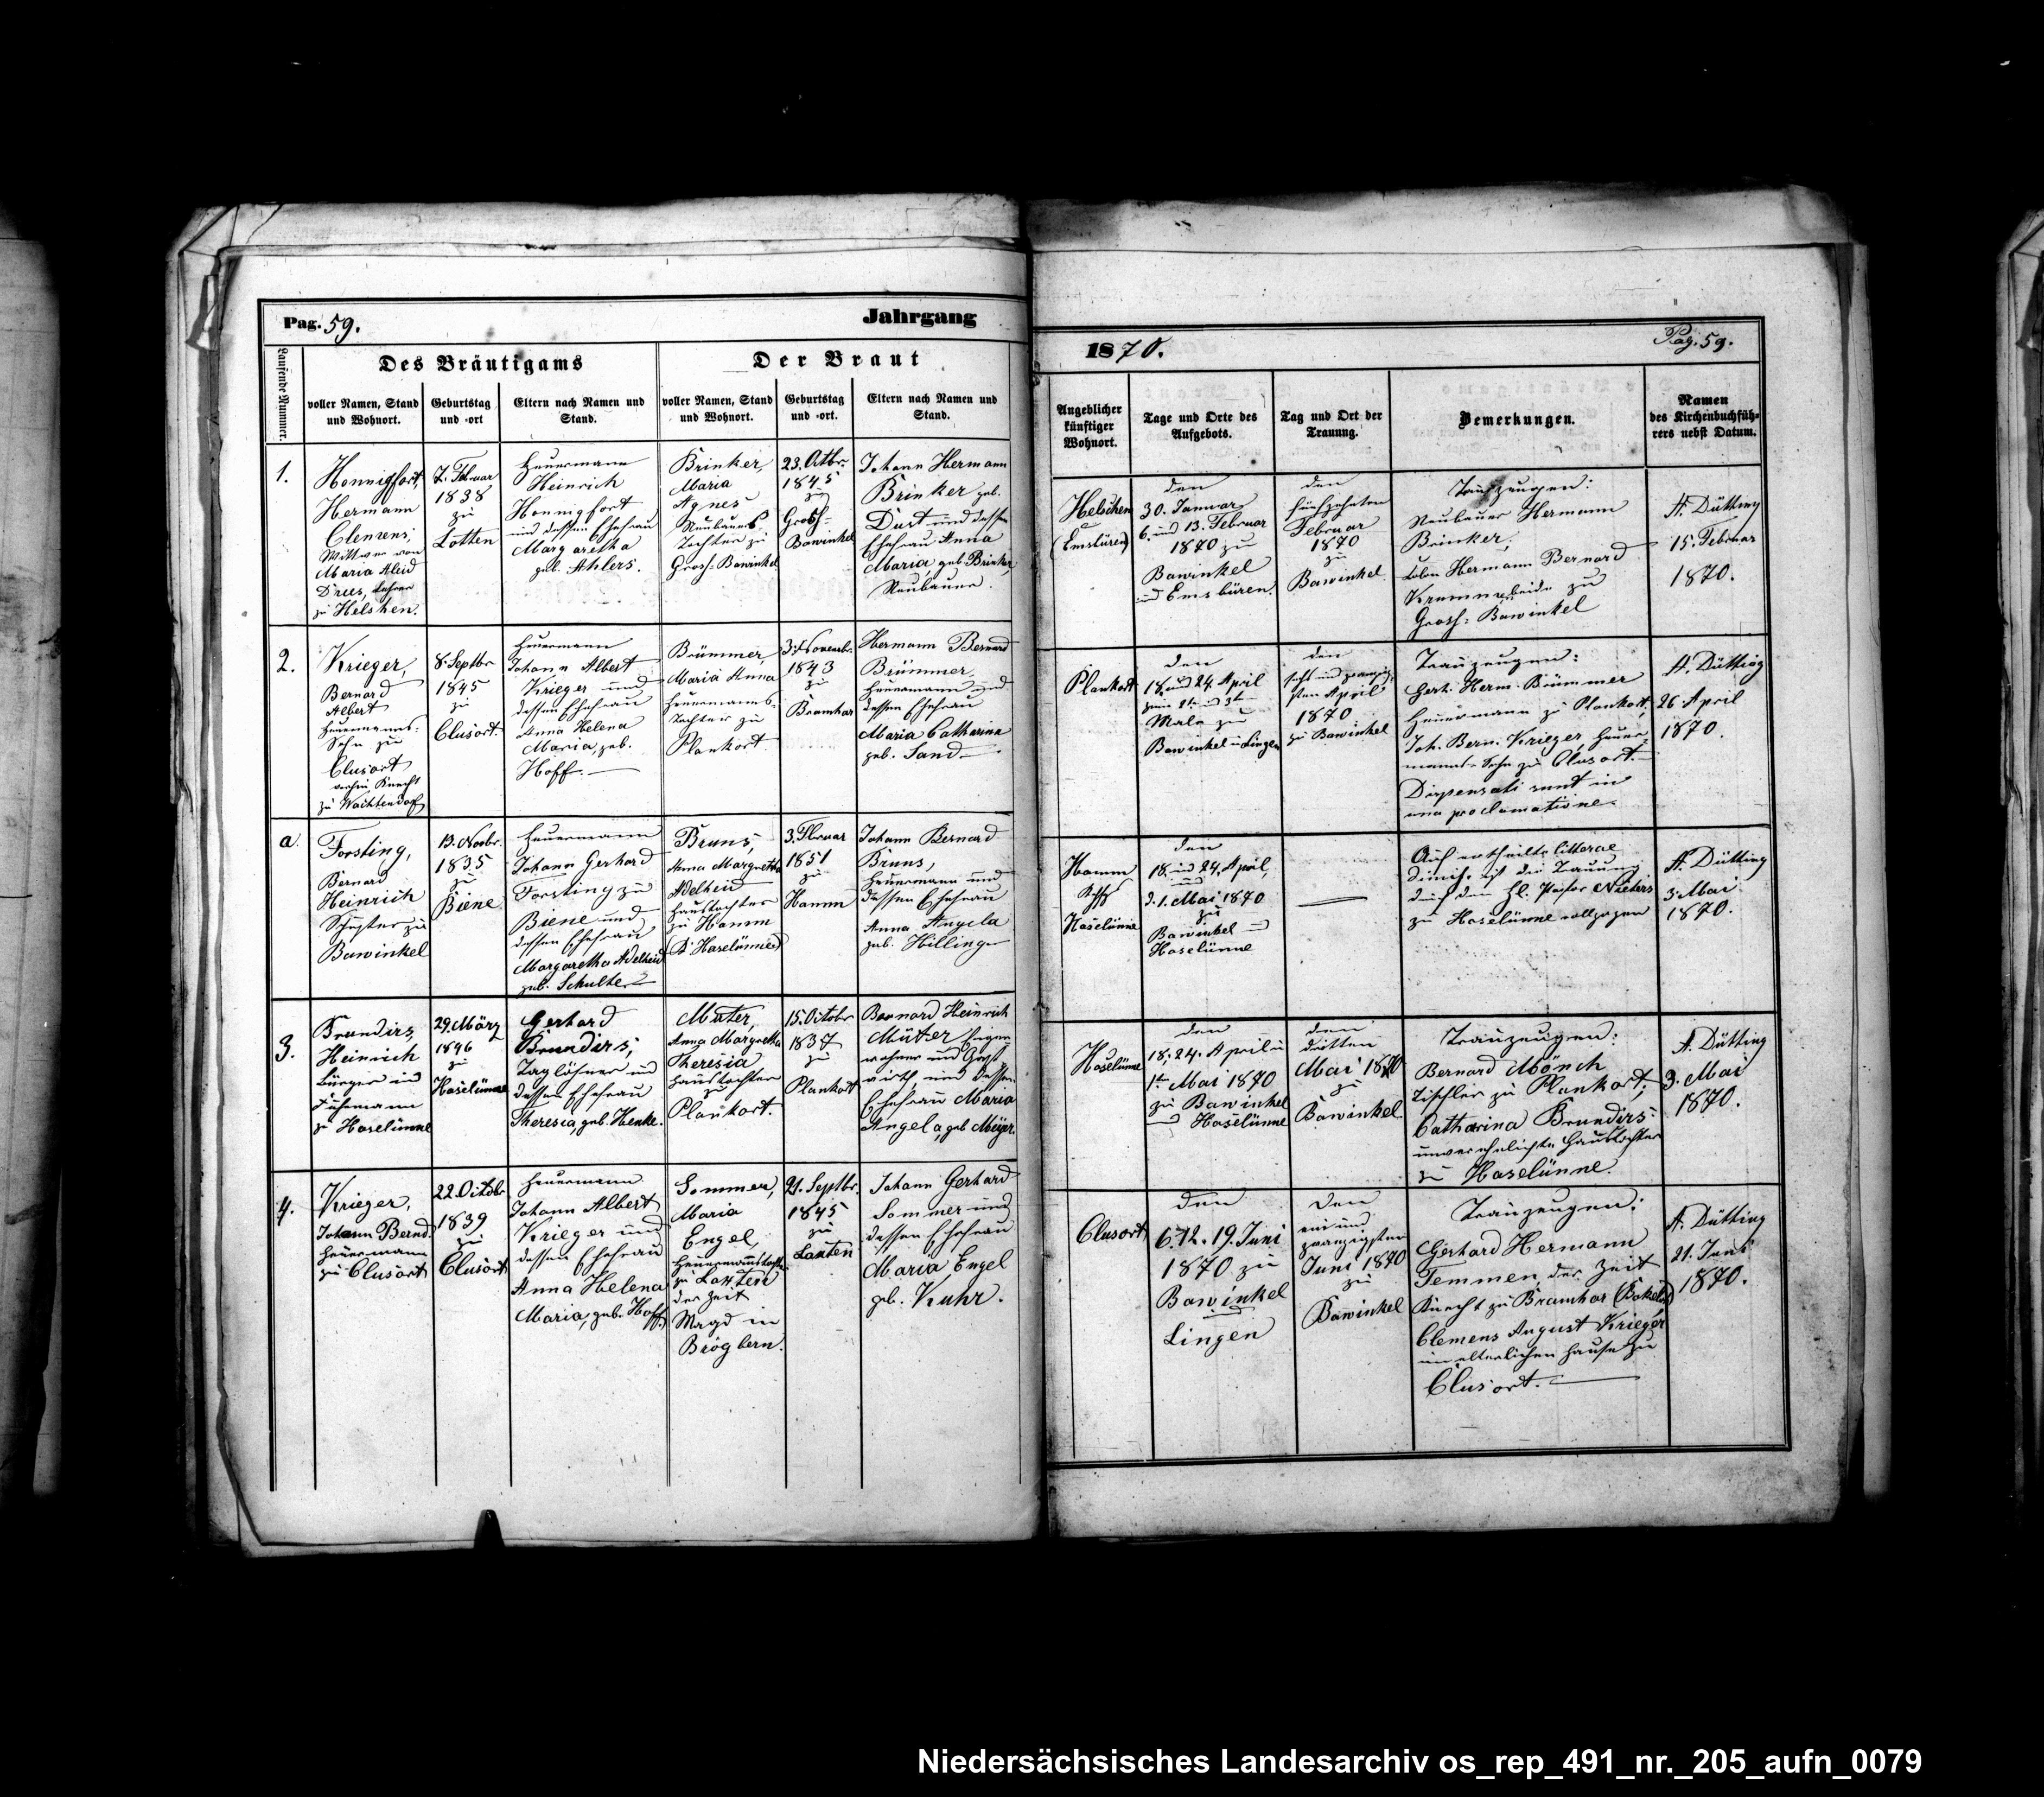 Pag. 59.
Jahrgang
Laufende Nummer.
Des Bräutigams
Der Braut
voller Namen, Stand
und Wohnort.
Geburtstag
und -ort
Eltern nach Namen und
Stand.
voller Namen, Stand
und Wohnort.
Geburtstag
und -ort.
Eltern nach Namen und
Stand.
1.
Honnigfort,
Hermann
Clemens,
Wittwer von
Maria Aleid
Dries,
zu Helschen.
7. Februar
1838
zu
Lotten
Heuermann
Heinrich
Honnigfort
und dessen Ehefrau
Margaretha
geb. Ahlers.
Brinker,
Maria
Agnes
Neubauers-
Tochter zu
Gross-Bawinkel
23. Octbr.
1845
zu
Gross-
Bawinkel
Johann Hermann
Brinker geb.
Dust und dessen
Ehefrau Anna
Maria, geb. Brinker,
Neubauer.
2.
Krieger,
Bernard
Albert
Heuermanns-
Sohn zu
Clusort
Knecht
zu Wachtendorf
8. Septbr
1845
zu
Clusort.
Heuermann
Johann Albert
Krieger und
dessen Ehefrau
Anna Helena
Maria, geb.
Hoff.
Brümmer,
Maria Anna
Heuermanns-
Tochter zu
Plankort
3. Novembr.
1843
zu
Bramhar
Hermann Bernard
Brümmer,
Heuermann und
dessen Ehefrau
Maria Catharina
geb. Sand
a.
Forsting,
Bernard
Heinrich
Schuster zu
Bawinkel
13. Novbr.
1835
zu
Biene
Heuermann
Johann Gerhard
Forsting zu
Biene und
dessen Ehefrau
Margaretha Adelheid
geb. Schulte
Bruns,
Anna Margretha
Adelheid
Haustochter
zu Hamm
(K. Haselünne)
3. Februar
1851
zu
Hamm
Johann Bernard
Bruns,
Heuermann und
dessen Ehefrau
Anna Angela
geb. Hillinge
3.
Brundirs,
Heinrich
Bürger und
Fuhrmann
zu Haselünne
29. März
1846
zu
Haselünne
Gerhard
Brundirs,
Taglöhner und
dessen Ehefrau
Theresia, geb. Henke.
Müter,
Anna Margretha
Theresia
Haustochter
zu
Plankort.
15. Octobr
1837
zu
Plankort
Bernard Heinrich
Müter
und Gast-
wirth, und dessen
Ehefrau Maria
Angela, geb. Meijer.
4.
Krieger,
Johann Bernd.
Heuermann
zu Clusort
22. Octobr
1839
zu
Clusort
Heuermann
Johann Albert
Krieger und
dessen Ehefrau
Anna Helena
Maria, geb. Hoff.
Sommer,
Maria
Engel,
Heuermannstochter
zu Laxten
der Zeit
Magd in
Brögbern.
21. Septbr.
1845
zu
Laxten
Johann Gerhard
Sommer und
dessen Ehefrau
Maria Engel
geb. Kuhr.
1870.
Pag. 59.
Angeblicher
künftiger
Wohnort.
Tage und Orte des
Aufgebots.
Tag und Ort der
Trauung.
Bemerkungen.
Namen
des Kirchenbuchfüh-
rers nebst Datum.
Helschen
(Emsbüren)
den
30. Januar
6. und 13. Februar
1870 zu
Bawinkel
und Emsbüren.
den
fünfzehnten
Februar
1870
zu
Bawinkel.
Trauzeugen:
Neubauer Hermann
Brinker,
Colon Hermann Bernard
zu
Gross-Bawinkel
A. Dütting
15. Februar
1870.
Plankort
den
18. und 24. April
zum 2ten und 3ten
Male zu
Bawinkel u Lingen
den
sechs und zwanzig-
sten April
1870
zu Bawinkel
Trauzeugen:
Gerh. Herm. Brümmer
Heuermann zu Plankort,
Joh. Bern. Krieger, Heuer-
manns-Sohn zu Clusort.
Dispensati sunt in
una proclamatione.
A. Dütting
26. April
1870.
Hamm
Haselünne
den
18. und 24. April,
und
d. 1. Mai 1870
zu
Bawinkel und
Haselünne
Auf ertheilte litterae
dimis. ist die Trauung
durch den Hl. Pastor Nieters
zu Haselünne vollzogen
A. Dütting
3. Mai
1870.
Haselünne
den
18. 24. April u
1ten Mai 1870
zu Bawinkel
und Haselünne
den
dritten
Mai 1870
zu
Bawinkel.
Trauzeugen:
Bernard Mönch
Tischler zu Plankort,
Catharina Brundirs
unverehelichte Haustochter
zu Haselünne.
A. Dütting
3. Mai
1870.
Clusort
den
6. 12. 19. Juni
1870 zu
Bawinkel
und
Lingen
den
ein und
zwanzigsten
Juni 1870
zu
Bawinkel
Trauzeugen:
Gerhard Hermann
Temmen, der Zeit
Knecht zu Bramhar
Clemens August Krieger
im elterlichen Hause zu
Clusort.
A. Dütting
21. Juni
1870.
Niedersächsisches Landesarchiv os_rep_491_nr._205_aufn_0079